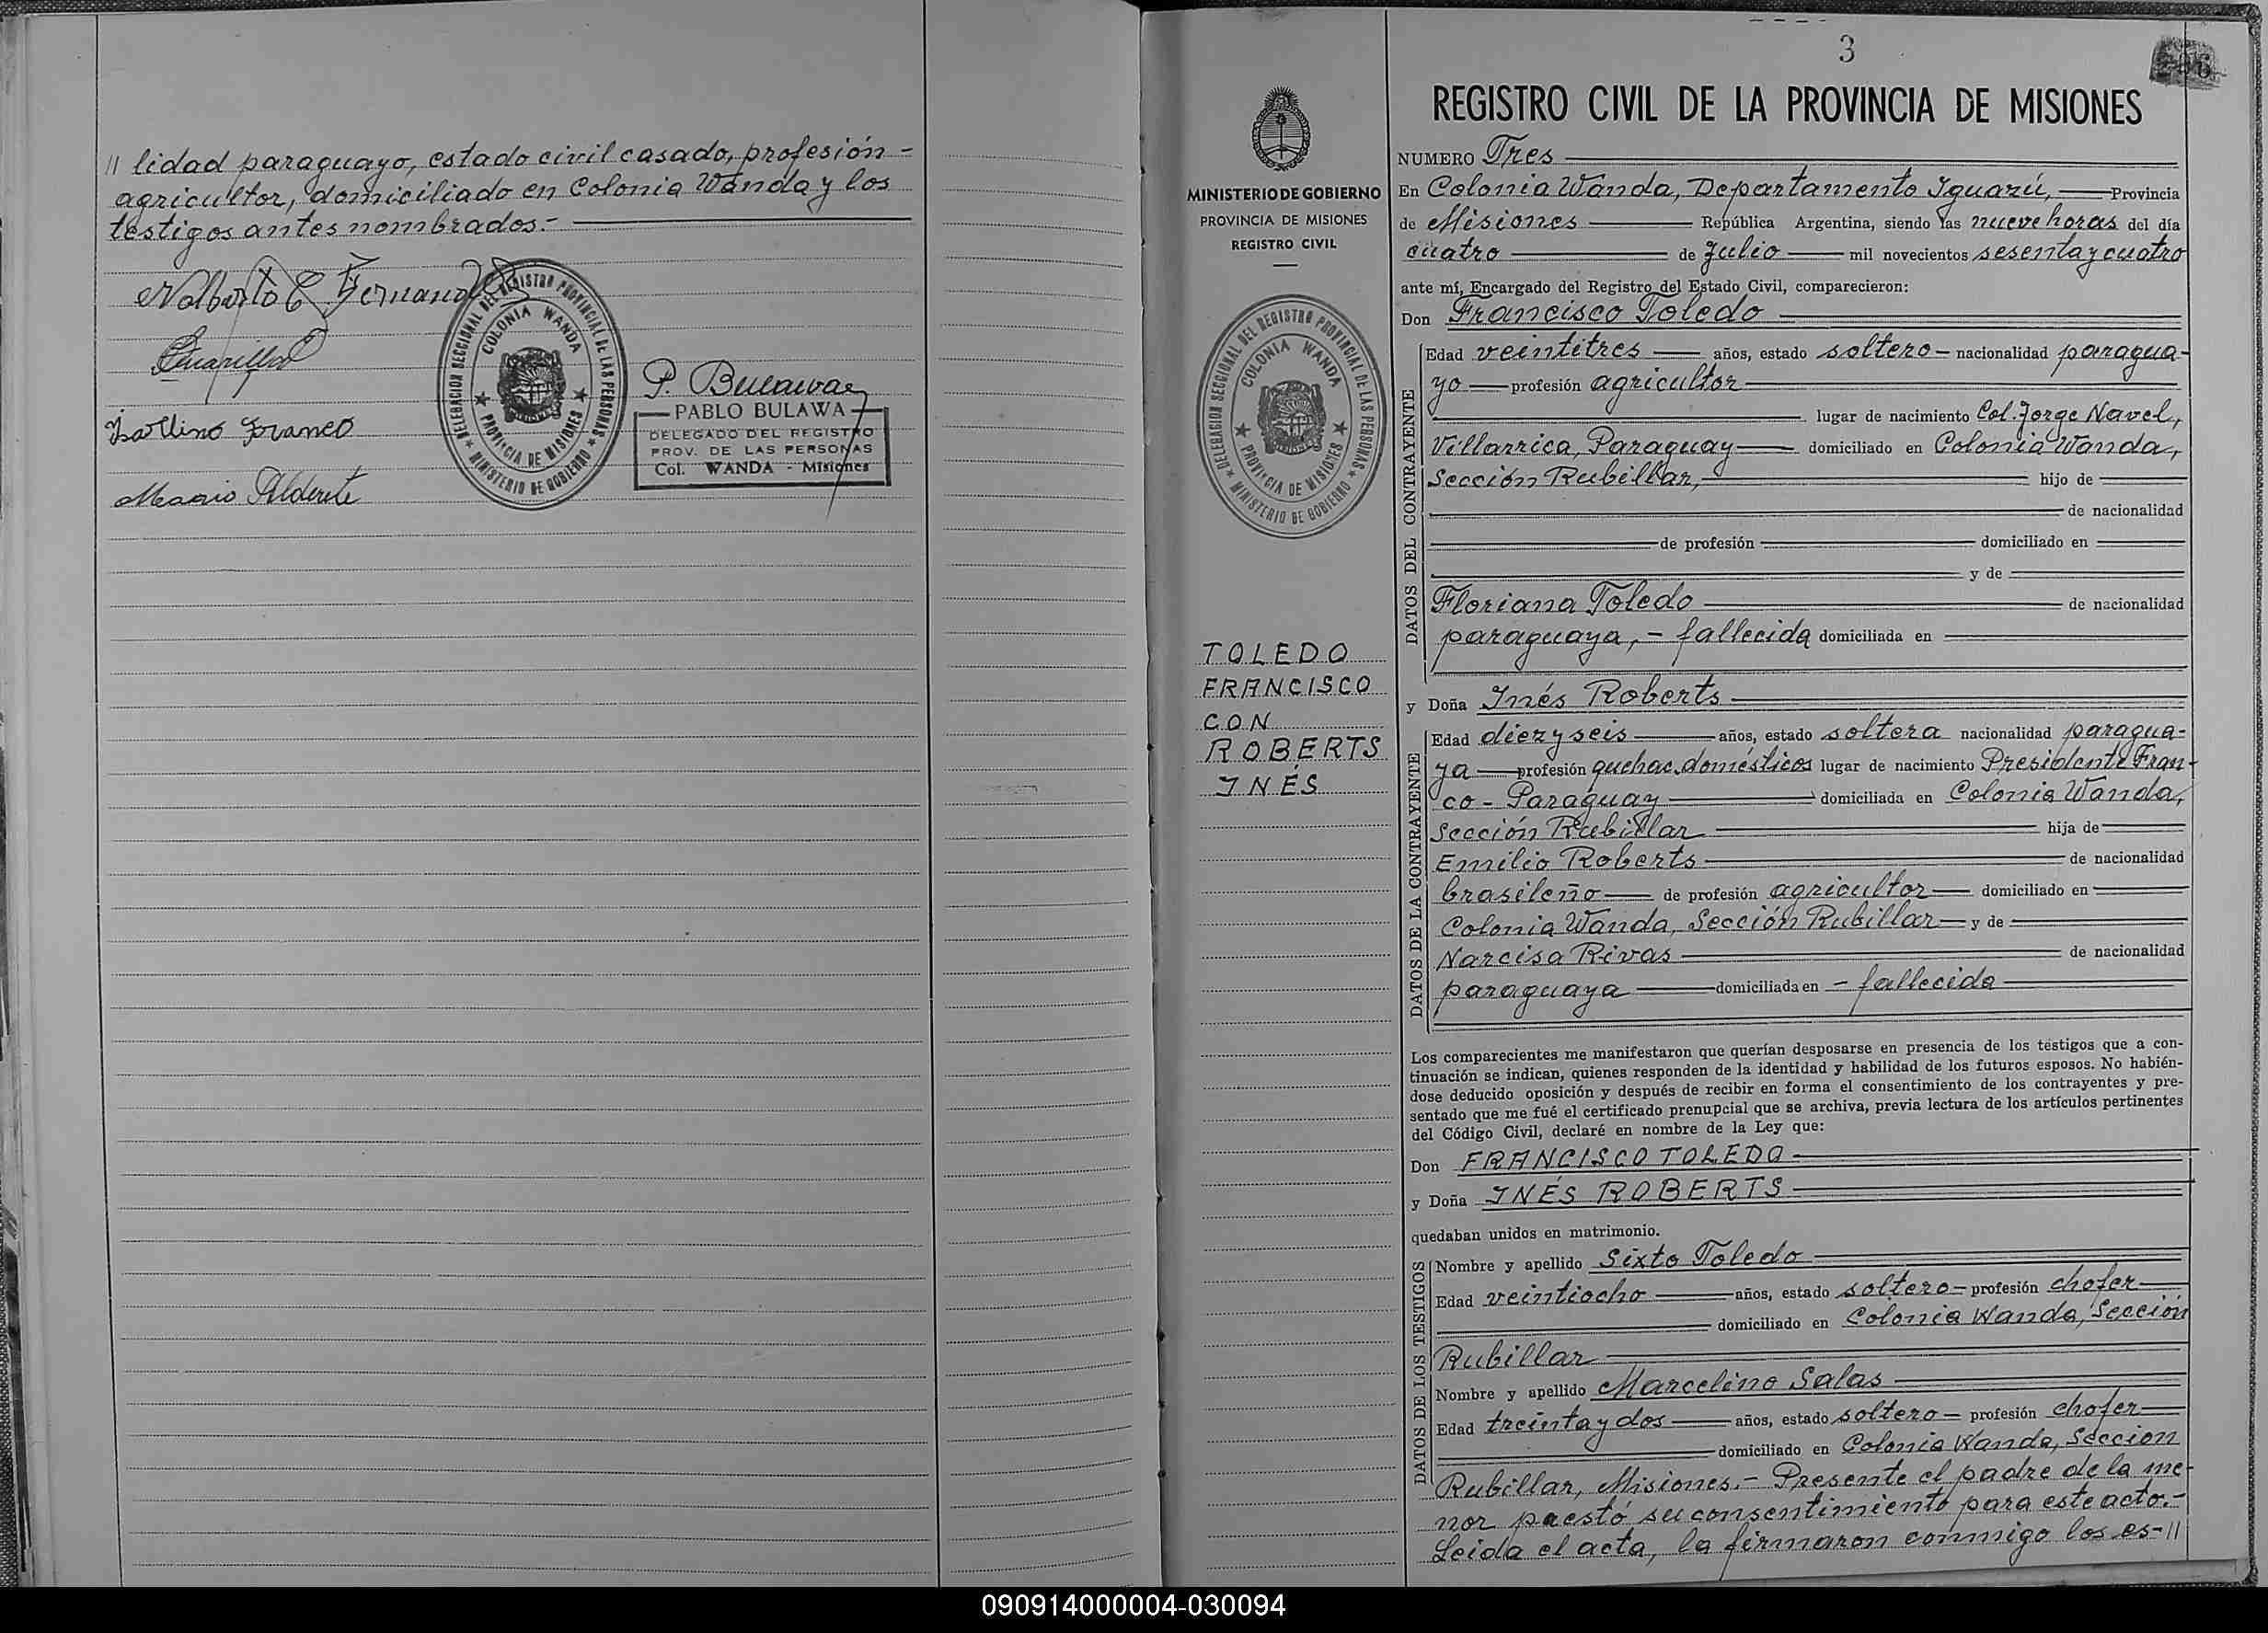 // lidad paraguayo, estado civil casado, profesión -
agricultor, domiciliado en Colonia Wanda y los
testigos antes nombrados.-
P. Bulawa
PABLO BULAWA
DELEGADO DEL REGISTRO
PROV. DE LAS PERSONAS
Col. WANDA - Misiones
DELEGACION SECCIONAL DEL REGISTRO PROVINCIAL DE LAS PERSONAS
COLONIA WANDA
PROVINCIA DE MISIONES
MINISTERIO DE GOBIERNO
Mario Alderete
MINISTERIO DE GOBIERNO
PROVINCIA DE MISIONES
REGISTRO CIVIL
DELEGACION SECCIONAL DEL REGISTRO PROVINCIAL DE LAS PERSONAS
COLONIA WANDA
PROVINCIA DE MISIONES
MINISTERIO DE GOBIERNO
TOLEDO
FRANCISCO
CON
ROBERTS
INÉS
3
REGISTRO CIVIL DE LA PROVINCIA DE MISIONES
NUMERO Tres
En Colonia Wanda, Departamento Iguazú, Provincia
de Misiones República Argentina, siendo las nueve horas del día
cuatro de Julio mil novecientos sesenta y cuatro
ante mí, Encargado del Registro del Estado Civil, comparecieron:
Don Francisco Toledo
DATOS DEL CONTRAYENTE
Edad veintitres años, estado soltero - nacionalidad paragua-
yo profesión agricultor
lugar de nacimiento Col. Jorge Navel,
Villarrica, Paraguay domiciliado en Colonia Wanda,
Sección Rubillar, hijo de
de nacionalidad
de profesión domiciliado en
y de
Floriana Toledo de nacionalidad
paraguaya, - fallecida domiciliada en
y Doña Inés Roberts
DATOS DE LA CONTRAYENTE
Edad diez y seis años, estado soltera nacionalidad paragua-
ya profesión quehac. domésticos lugar de nacimiento Presidente Fran-
co - Paraguay domiciliada en Colonia Wanda,
Sección Rubillar hija de
Emilio Roberts de nacionalidad
brasileño de profesión agricultor domiciliado en
Colonia Wanda, Sección Rubillar y de
Narcisa Rivas de nacionalidad
paraguaya domiciliada en - fallecida
Los comparecientes me manifestaron que querían desposarse en presencia de los testigos que a con-
tinuación se indican, quienes responden de la identidad y habilidad de los futuros esposos. No habién-
dose deducido oposición y después de recibir en forma el consentimiento de los contrayentes y pre-
sentado que me fué el certificado prenupcial que se archiva, previa lectura de los artículos pertinentes
del Código Civil, declaré en nombre de la Ley que:
Don FRANCISCO TOLEDO
y Doña INÉS ROBERTS
quedaban unidos en matrimonio.
DATOS DE LOS TESTIGOS
Nombre y apellido Sixto Toledo
Edad veintiocho años, estado soltero - profesión chofer
domiciliado en Colonia Wanda, Sección
Rubillar
Nombre y apellido Marcelino Salas
Edad treinta y dos años, estado soltero - profesión chofer
domiciliado en Colonia Wanda, Sección
Rubillar, Misiones.- Presente el padre de la me-
nor prestó su consentimiento para este acto.-
Leida el acta, la firmaron conmigo los es- //
090914000004-030094